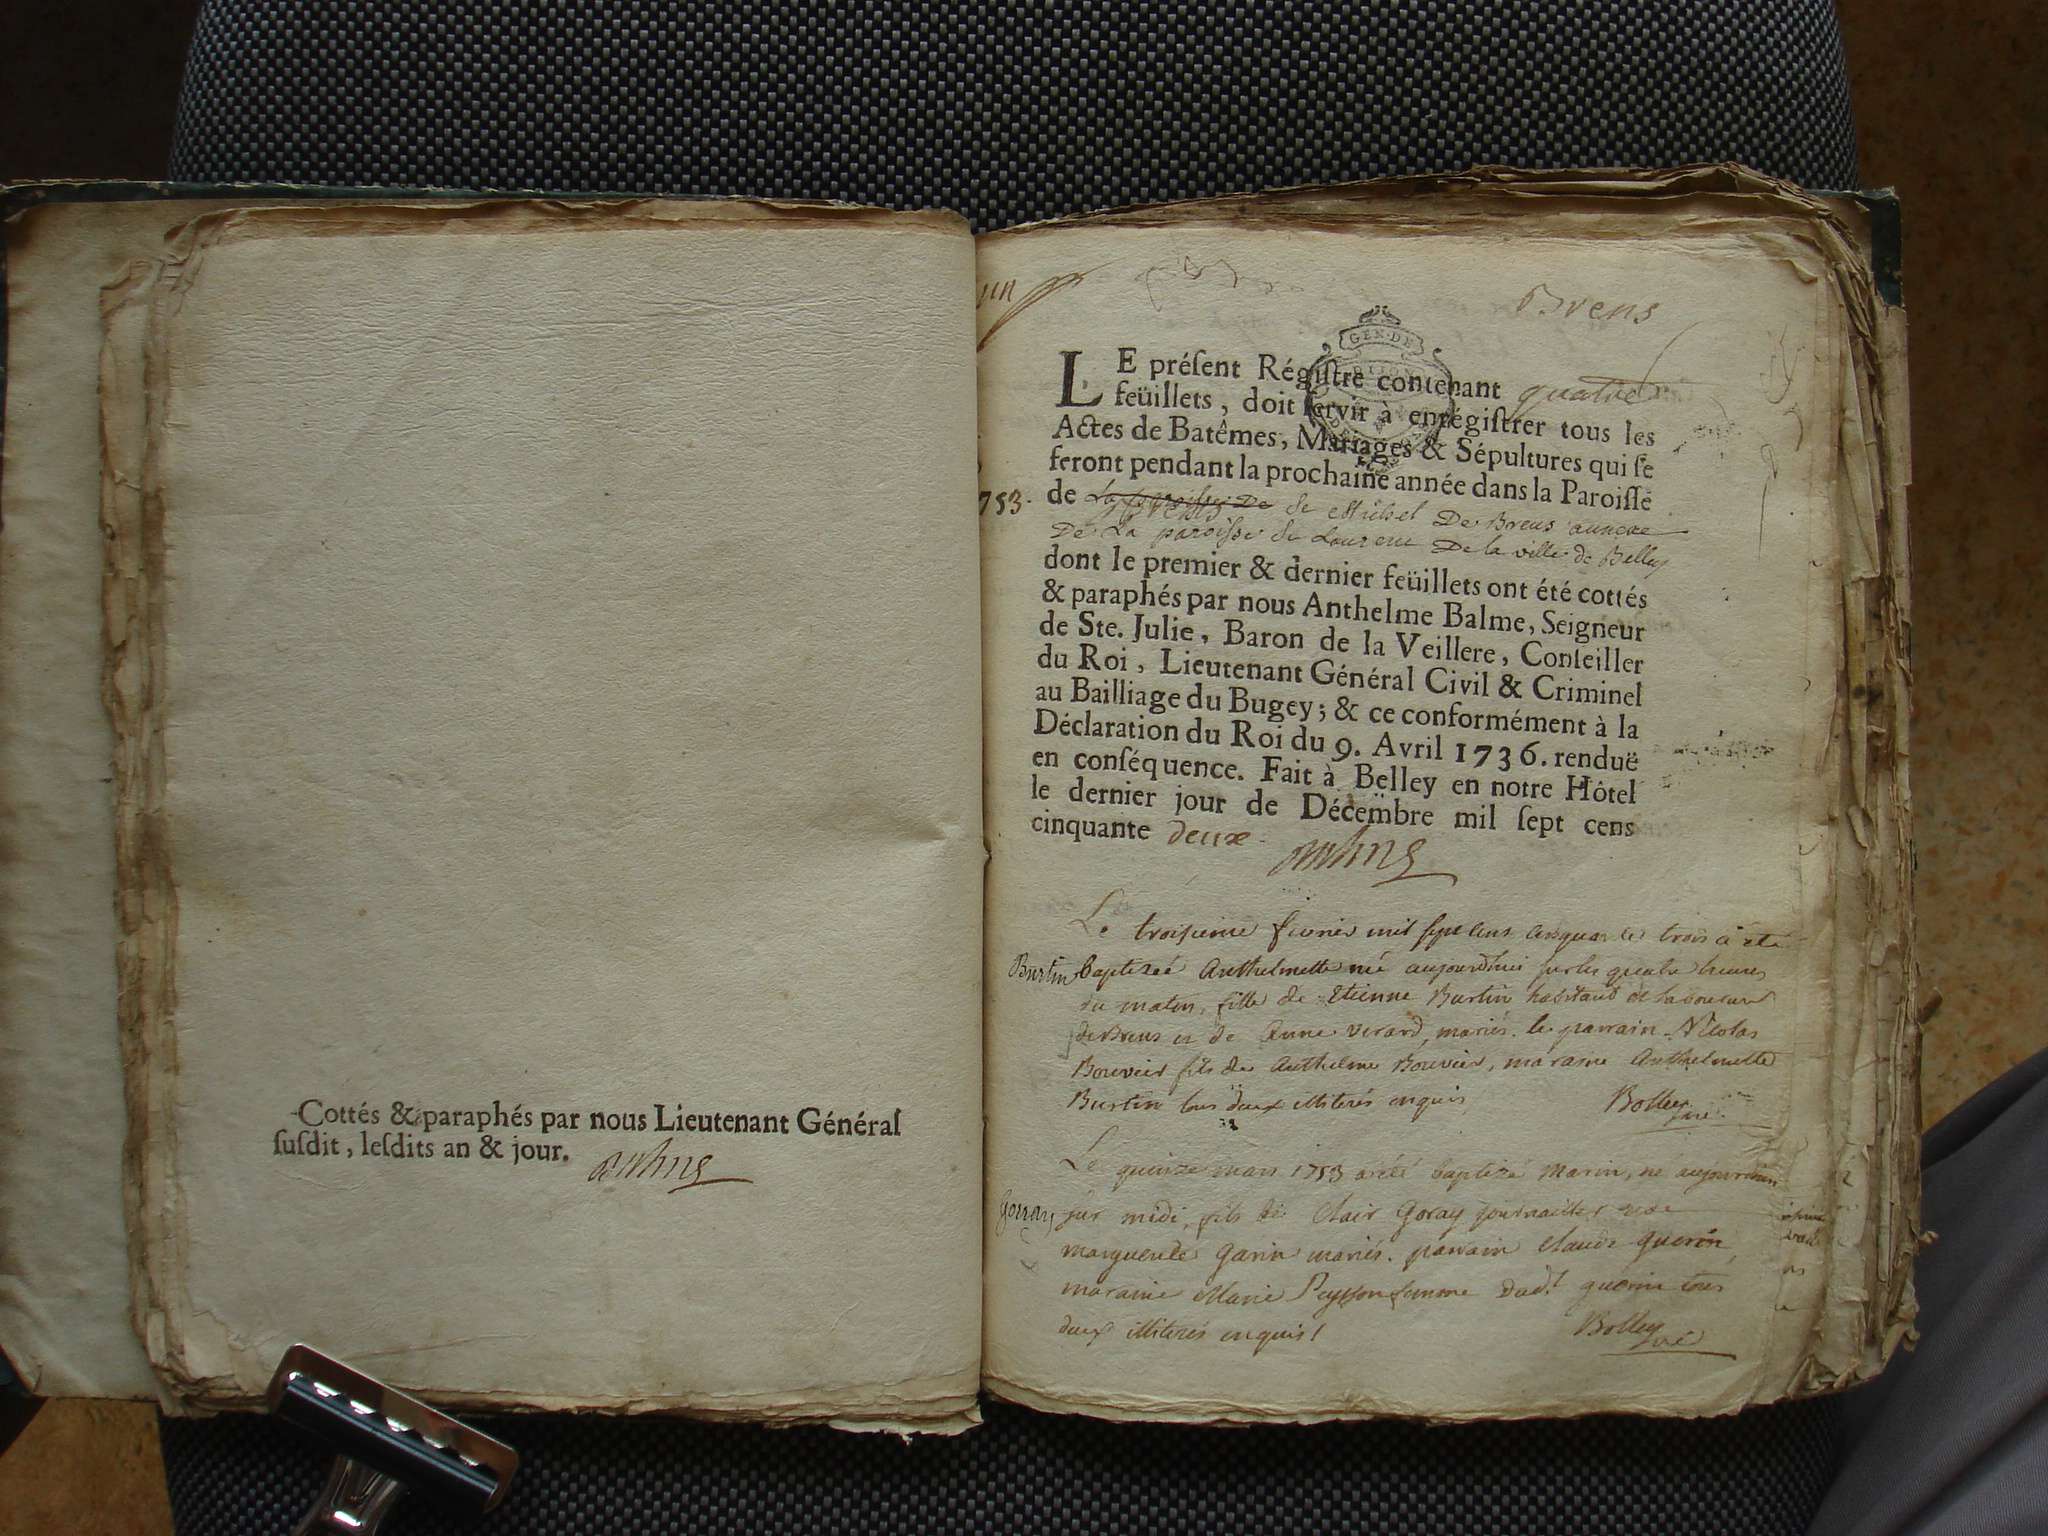 Cottés & paraphés par nous Lieutenant Général
ſuſdit, leſdits an & jour.
Brens
GEN·DE
LE préſent Régiſtre contenant quatre
feüillets, doit ſervir à enrégiſtrer tous les
Actes de Batêmes, Mariages & Sépultures qui ſe
feront pendant la prochaine année dans la Paroiſſe
753. de la paroisse De St Michel De Brens annexe
De La paroisse St Laurent De la ville de Belley
dont le premier & dernier feüillets ont été cottés
& paraphés par nous Anthelme Balme, Seigneur
de Ste. Julie, Baron de la Veillere, Conſeiller
du Roi, Lieutenant Général Civil & Criminel
au Bailliage du Bugey; & ce conformément à la
Déclaration du Roi du 9. Avril 1736. renduë
en conſéquence. Fait à Belley en notre Hôtel
le dernier jour de Décembre mil ſept cens
cinquante deux
Le troisieme fevrier mil sept cens cinquante trois a été
Burtin baptizeé Anthelmette neé aujourdhui sur les quatre heures
du matin, fille de Etienne Burtin habitant et laboureur
de Brens et de Anne Verard, mariés. le parrain Nicolas
Bouvier fils de Anthelme Bouvier, maraine Anthelmette
Burtin tous deux illiterés enquis Bolley
Le quinze mars 1753 a été baptizé Marin, né aujourdhui
Gorray sur midi, fils de Clair Goray journailler et de
marguerite Garin mariés. parrain Claude Guerin,
maraine Marie femme Dud.t guerin tous
deux illiterés enquis! Bolley